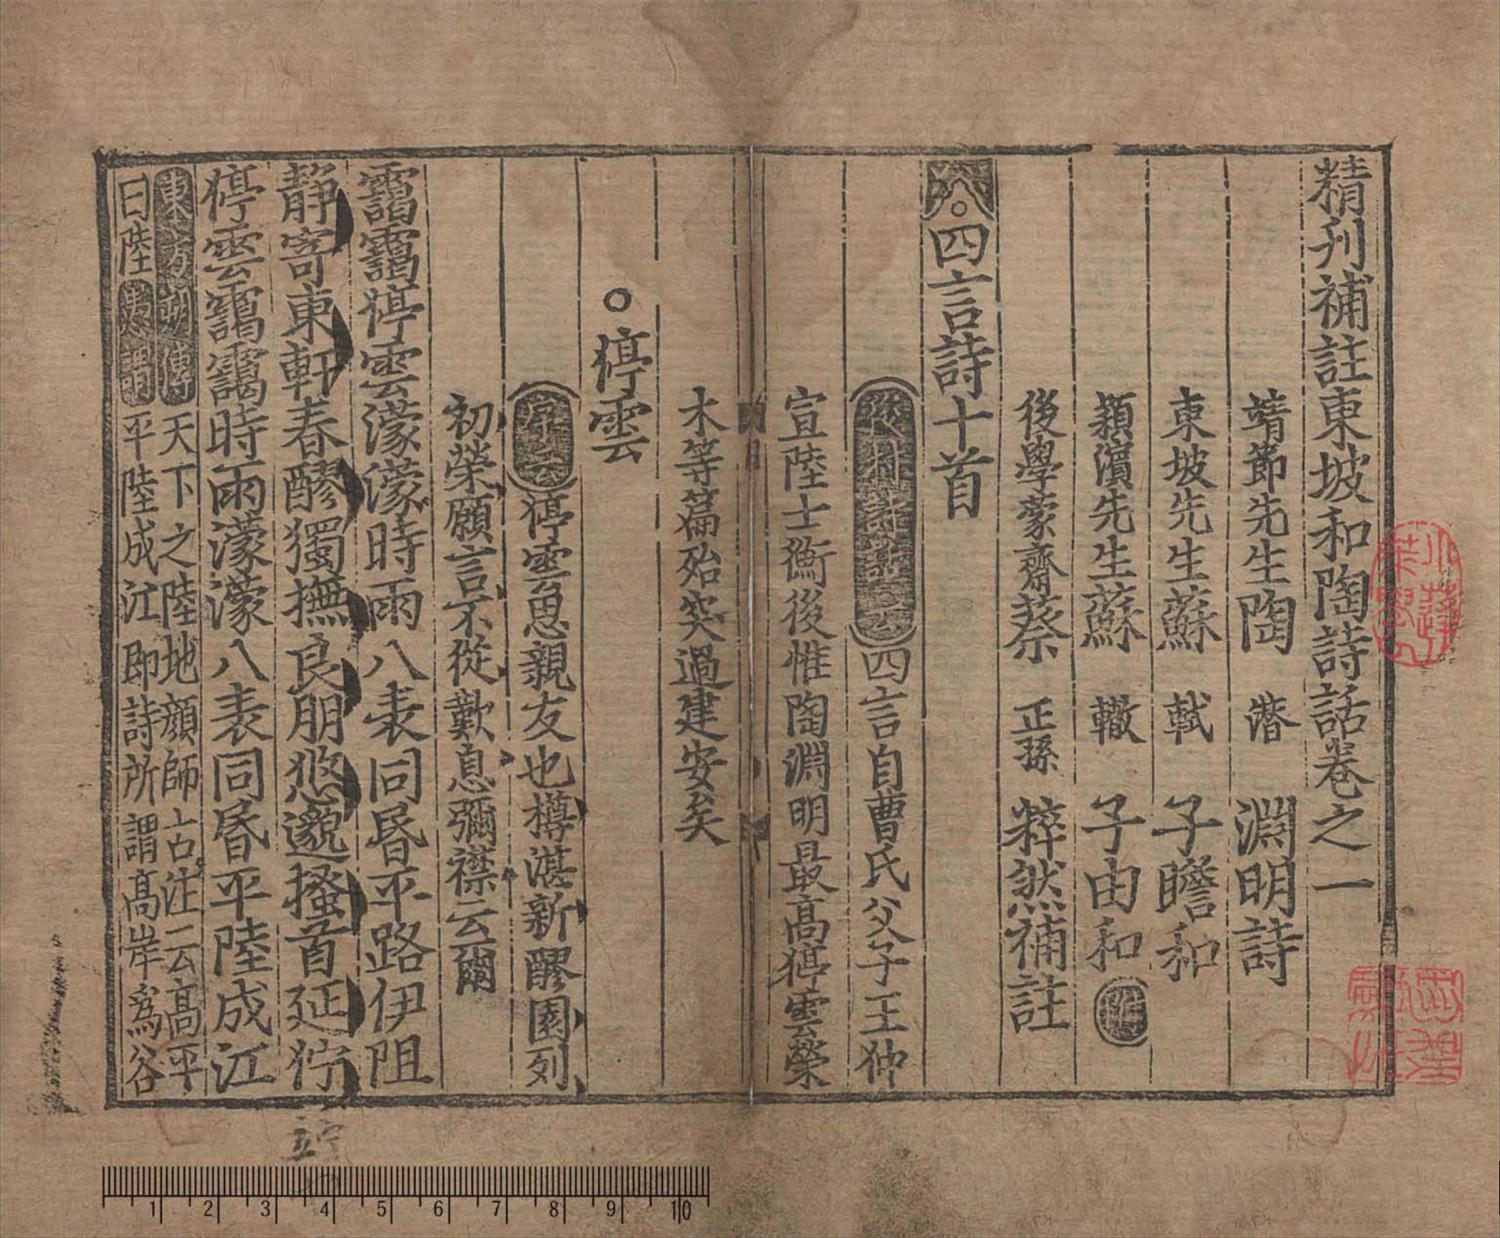 精刊補註東坡和陶詩話卷之一
靖節先生陶 潛 淵明詩
東坡先生蘇 軾 子瞻和
潁濱先生蘇 轍 子由和
後學蒙齋蔡 正孫 粹然補註
四言詩十首
四言自曹氏父子王仲
宣陸士衡後惟陶淵明最高停雲榮
木等篇殆突過建安矣
○停雲
停雲思親友也樽湛新醪園列
初榮願言不從歎息彌襟云爾
靄靄停雲濛濛時雨八表同昏平路伊阻
靜寄東軒春醪獨撫良朋悠邈搔首延佇
停雲靄靄時雨濛濛八表同昏平陸成江
東方朔傳天下之陸地顔師古注云高平
曰陸愚謂平陸成江即詩所謂高岸爲谷
1 2 3 4 5 6 7 8 9 10